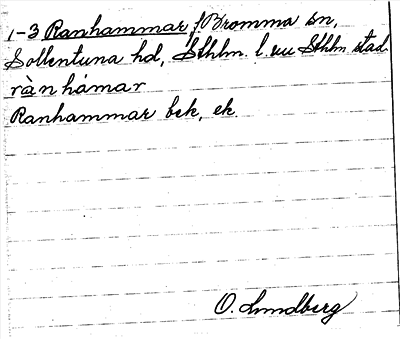 1-3 Ranhammar f. Bromma sn,
Sollentuna hd, Sthlm. l. nu Sthlm stad
rànhámar
Ranhammar bek, ek.
O. Lundberg